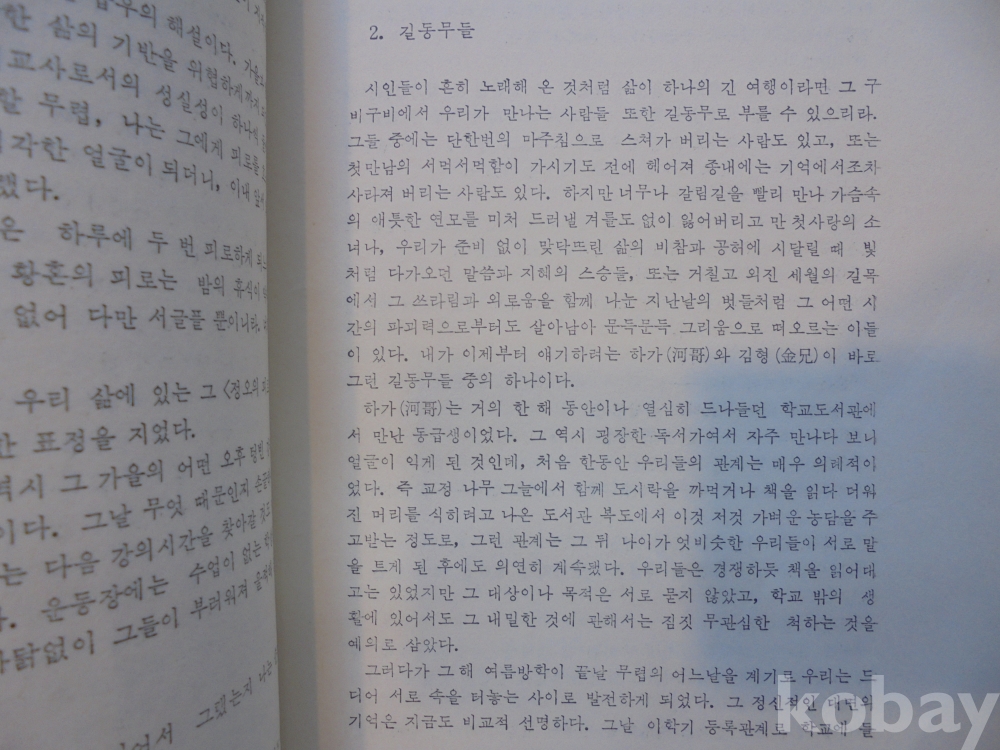 우의 해설이다. 가을
한 삶의 기반을 위협하게까지
교사로서의 성실성이 하나씩
할 무렵, 나는 그에게 피로를
각한 얼굴이 되더니, 이내
했다.
은 하루에 두 번 피로하게
황혼의 피로는 밤의 휴식이
없어 다만 서글플 뿐이니다.
우리 삶에 있는 그 <정오의
한 표정을 지었다.
역시 그 가을의 어떤 오후
이다. 그날 무엇 때문인지
는 다음 강의시간을 찾아갈
운동장에는 수업이 없는
까닭없이 그들이 부러워져
그랬는지 나는
2. 길동무들
시인들이 흔히 노래해 온 것처럼 삶이 하나의 긴 여행이라면 그 구
비구비에서 우리가 만나는 사람들 또한 길동무로 부를 수 있으리라.
그들 중에는 단한번의 마주침으로 스쳐가 버리는 사람도 있고, 또는
첫만남의 서먹서먹함이 가시기도 전에 헤어져 종내에는 기억에서조차
사라져 버리는 사람도 있다. 하지만 너무나 갈림길을 빨리 만나 가슴속
의 애틋한 연모를 미처 드러낼 겨를도 없이 잃어버리고 만 첫사랑의 소
녀나, 우리가 준비 없이 맞닥뜨린 삶의 비참과 공허에 시달릴 때 빛
처럼 다가오던 말씀과 지혜의 스승들, 또는 거칠고 외진 세월의 길목
에서 그 쓰라림과 외로움을 함께 나눈 지난날의 벗들처럼 그 어떤 시
간의 파괴력으로부터도 살아남아 문득문득 그리움으로 떠오르는 이들
이 있다. 내가 이제부터 얘기하려는 하가(河哥)와 김형(金兄)이 바로
그런 길동무들 중의 하나이다.
하가(河哥)는 거의 한 해 동안이나 열심히 드나들던 학교도서관에
서 만난 동급생이었다. 그 역시 굉장한 독서가여서 자주 만나다 보니
얼굴이 익게 된 것인데, 처음 한동안 우리들의 관계는 매우 의례적이
었다. 즉 교정 나무 그늘에서 함께 도시락을 까먹거나 책을 읽다 더워
진 머리를 식히려고 나온 도서관 복도에서 이것 저것 가벼운 농담을 주
고받는 정도로, 그런 관계는 그 뒤 나이가 엇비슷한 우리들이 서로 말
을 트게 된 후에도 의연히 계속됐다. 우리들은 경쟁하듯 책을 읽어대
고는 있었지만 그 대상이나 목적은 서로 묻지 않았고, 학교 밖의 생
활에 있어서도 그 내밀한 것에 관해서는 짐짓 무관심한 척하는 것을
예의로 삼았다.
그러다가 그 해 여름방학이 끝날 무렵의 어느날을 계기로 우리는 드
디어 서로 속을 터놓는 사이로 발전하게 되었다. 그 정신적인 대면의
기억은 지금도 비교적 선명하다. 그날 이학기 등록관계로 학교에 들
kobay